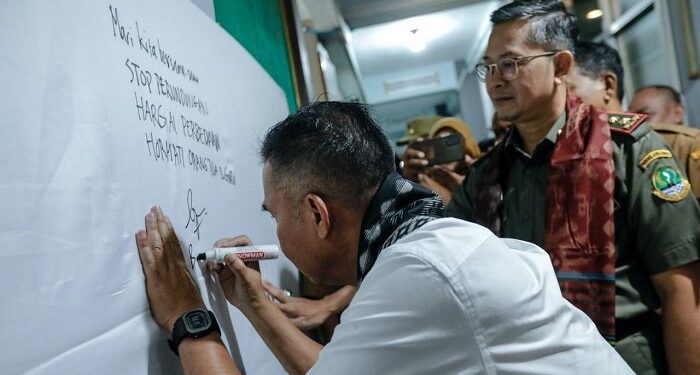 Mari kita bersama-sama
STOP PERUNDUNGAN
HARGAI PERBEDAAN
HORMATI ORANG TUA & GURU
SNOWMAN